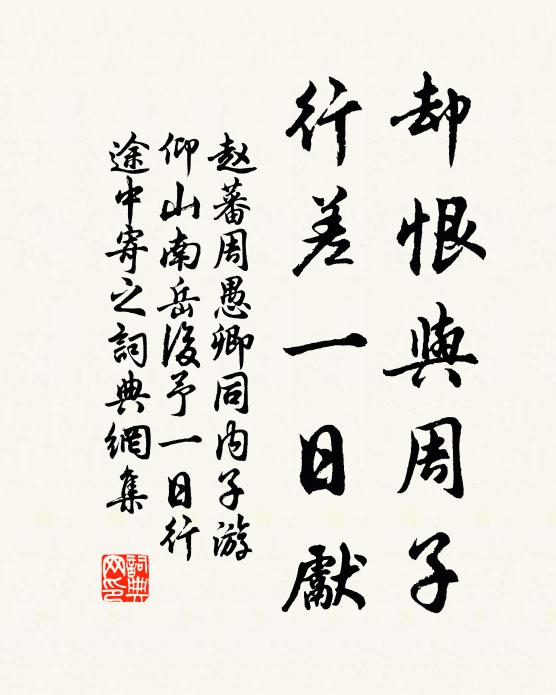 却恨與周子
行差一日獻
赵蕃周愚卿同内子游
仰山南岳後予一日行
途中寄之詞典網集
詞典
网印